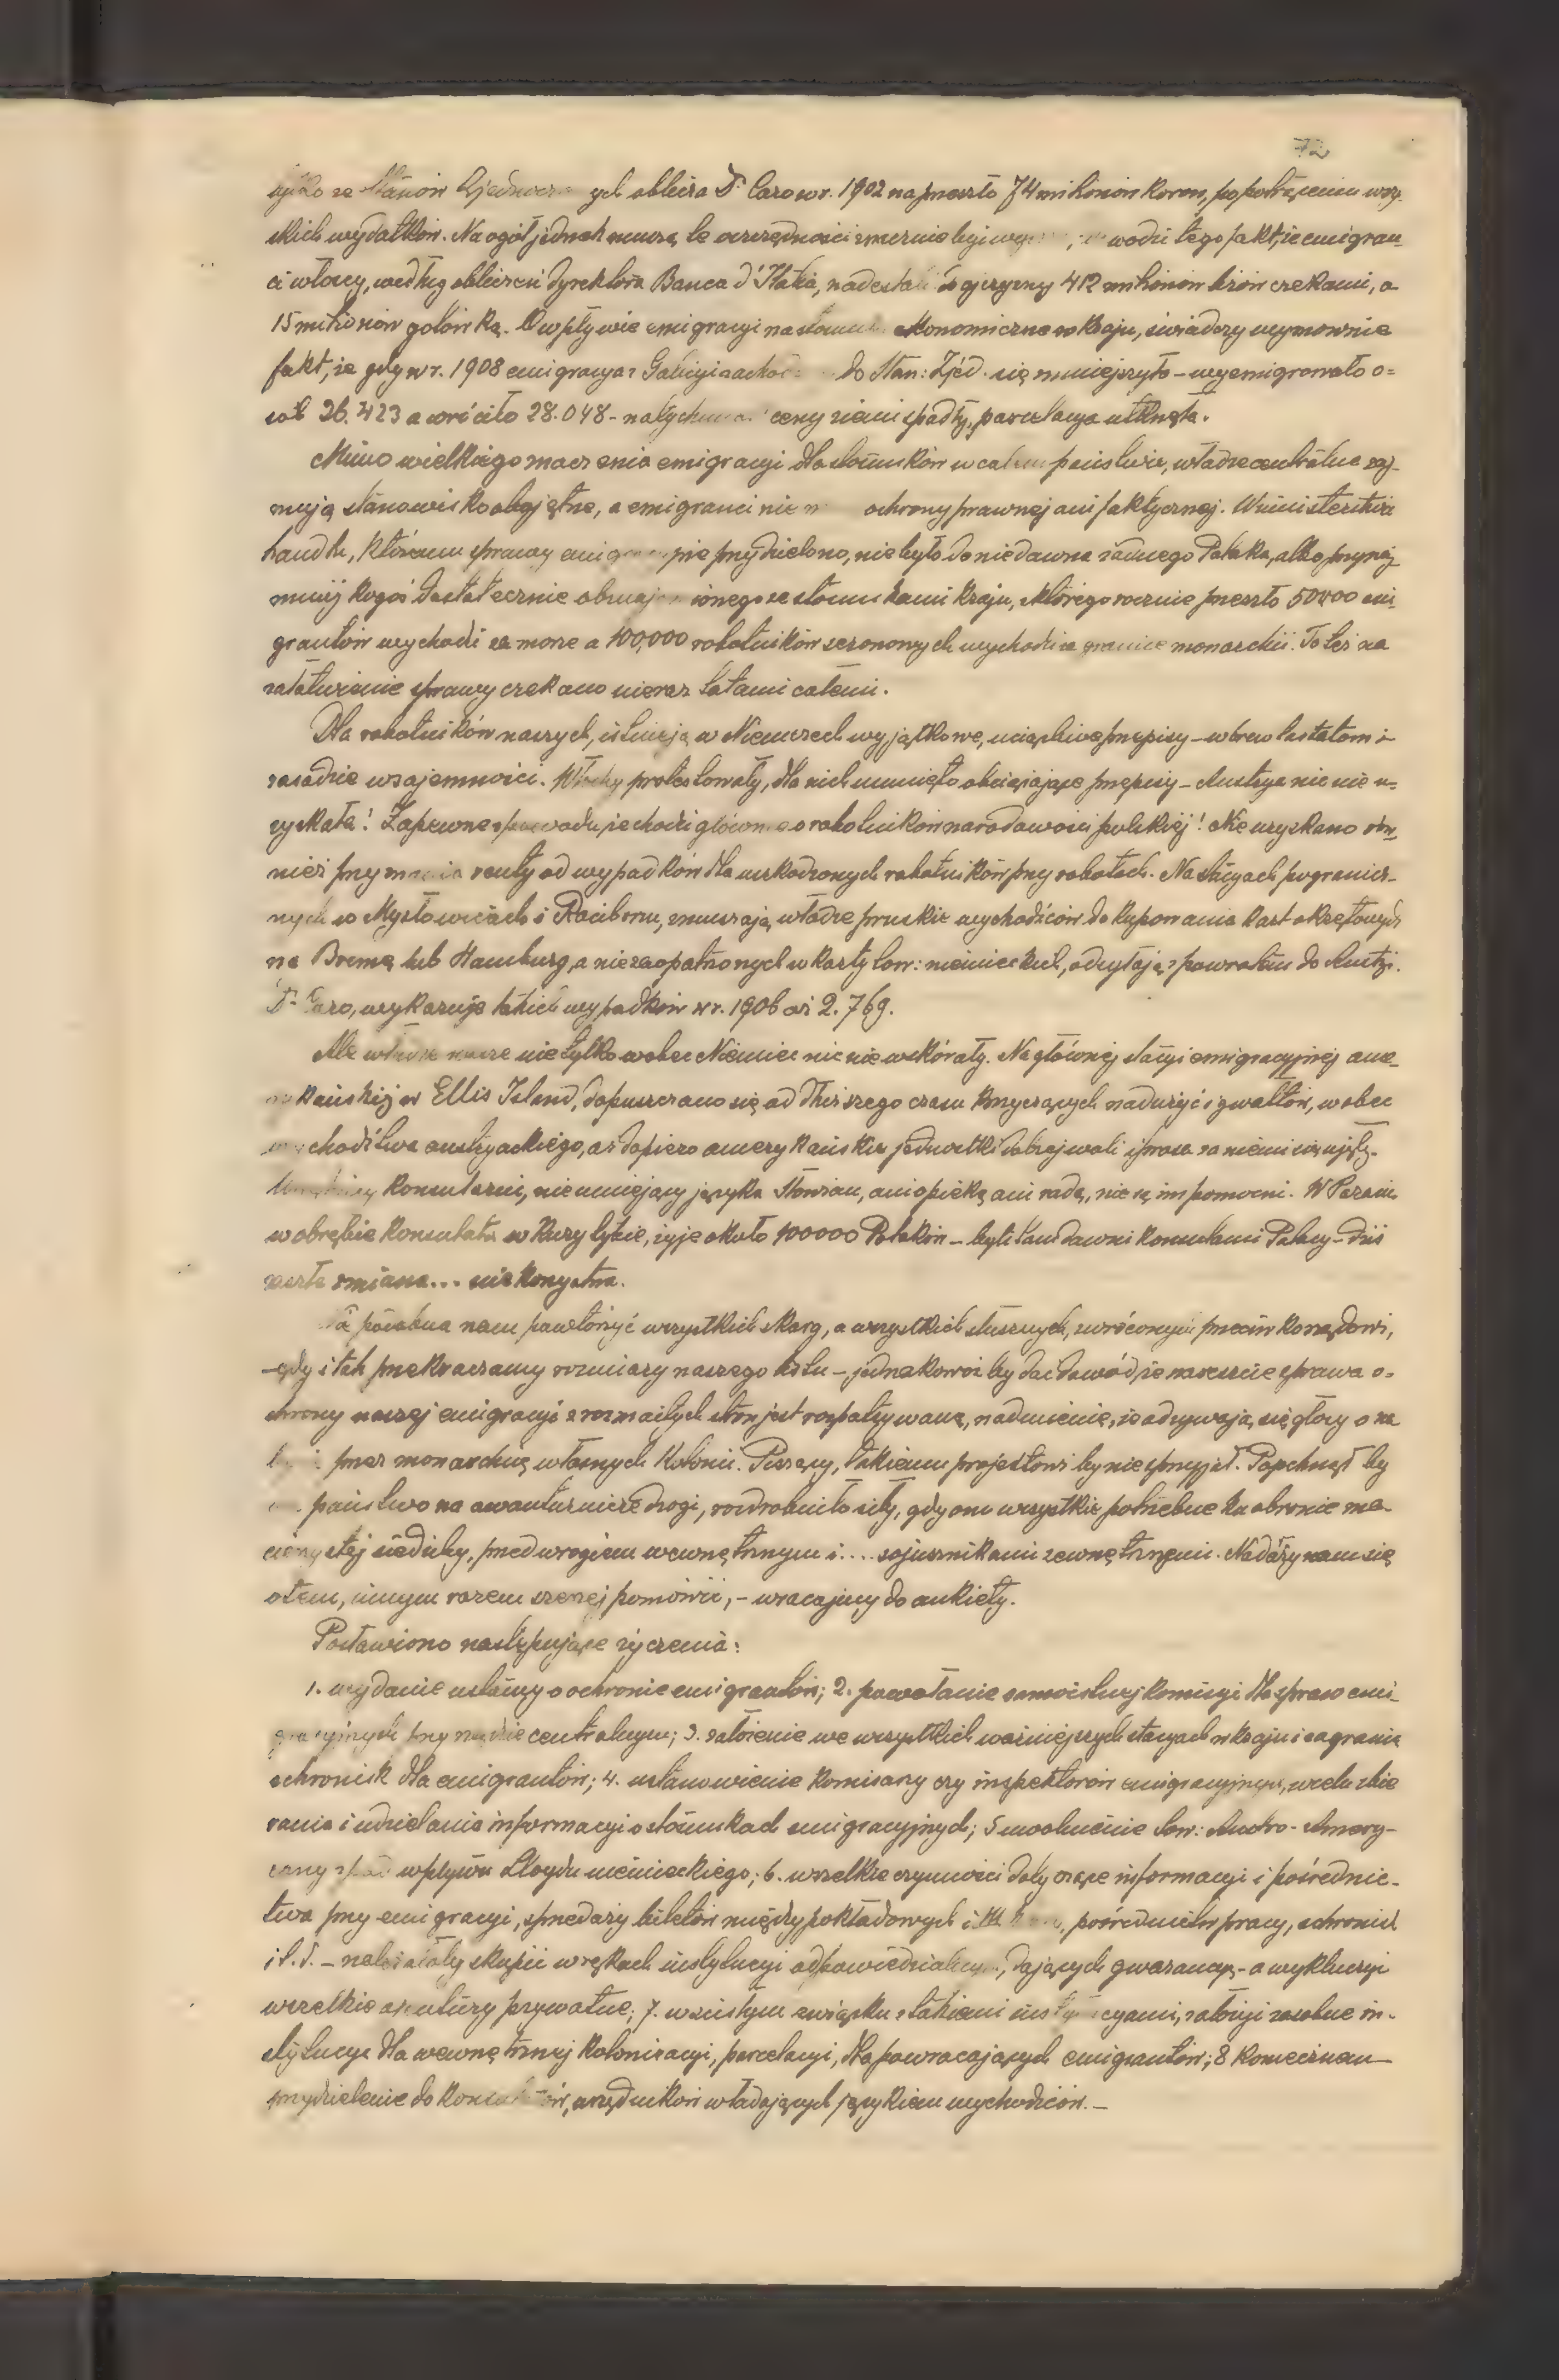 72
tylko ze Stanów Zjednocz ych oblicza Dr Caro w r. 1902 na przeszło 74 milionów koron, po potrąceniu wszy-
stkich wydatków. Na ogół jednak muszą te oszczędności znacznie być wodzi tego fakt, że emigran-
ci włoscy, według obliczeń dyrektora Banca d'Italia, nadesłali do ojczyzny 412 milionów lirów czekami, a
15 milionów gotówką. O wpływie emigracyi na stosunki ekonomiczne w kraju, świadczy wymownie
fakt, że gdy w r. 1908 emigracya z Galicyi zachod do Stan: Zjéd. się zmniejszyło – wyemigrowało o=
sób 26.423 a wróciło 28.048 – natychmiast ceny ziemi spadły, parcelacya utknęła.
Mimo wielkiego znaczenia emigracyi dla stosunków w całem państwie, władze centralne zaj-
mują stanowisko obojętne, a emigranci nie ochrony prawnej ani faktycznej. W ministerstwie
handlu, któremu sprawy emigracyjne przydzielono, nie było do niedawna żadnego Polaka, albo przynaj-
mniéj kogoś dostatecznie obznajomionego ze stosunkami kraju, z którego rocznie przeszło 50000 emi-
grantów wychodzi za morze a 100,000 robotników sezonowych wychodzi za granice monarchii. To też na
załatwienie sprawy czekano nieraz latami całemi.
Dla robotników naszych, istnieją w Niemczech wyjątkowe, uciążliwe przepisy – wbrew traktatom i
zasadzie wzajemności. Włochy protestowały, dla nich usunięto obciążające przepisy – Austrya nic nie u=
zyskała! Zapewne z powodu, że chodzi głównie o robotników narodowości polskiéj! Nie uzyskano rów-
nież przyznania renty od wypadków dla uszkodzonych robotników przy robotach. Na stacyach pogranicz-
nych w Mysłowicach i Raciborzu, zmuszają władze pruskie wychodźców do kupowania kart okrętowych
na Bremę lub Hamburg, a niezaopatrzonych w karty tow: niemieckich, odsyłają z powrotem do Austryi.
Dr Caro, wykazuje takich wypadków w r. 1906 aż 2.769.
Ale władze nasze nie tylko wobec Niemiec nic nie wskórały. Na głównéj stacyi emigracyjnéj ame-
rykańskiéj w Ellis Island, dopuszczano się od dłuższego czasu krzyczących nadużyć i gwałtów, wobec
wychodźtwa austryackiego, aż dopiero amerykańskie jednostki dobrej woli i prasa za niemi się ujęły.
Urzędnicy konsularni, nie umiejący języka Słowian, ani opieką ani radą, nie są im pomocni. W Paranie
w obrębie konsulatu w Kurytybie, żyje około 100000 Polaków – byli tam dawni konsulami Polacy – dziś
zaszła zmiana... niekorzystna.
potrzeba nam powtórzyć wszystkich skarg, a wszystkich słusznych, zwróconych przeciwko rządowi,
gdy i tak przekraczamy rozmiary naszego listu – jednakowoż by dać dowód, że nareszcie sprawa o=
chrony naszej emigracyi z rozmaitych stron jest rozpatrywaną, nadmienię, że odzywają się głosy o na
przez monarchię własnych kolonii. Piszący, takiemu projektowi by nie sprzyjał. Popchnął by
państwo na awanturnicze drogi, rozdrobniło siły, gdy one wszystkie potrzebne ku obronie ma-
cierzystéj siedziby, przed wrogiem wewnętrznym i.... sojusznikami zewnętrznemi. Nadarzy nam się
o tem, innym razem szerzéj pomówić, – wracajmy do ankiety.
Postawiono następujące życzenia:
1. wydanie ustawy o ochronie emigrantów; 2. powołanie samoistnej komisyi dla spraw emi-
gracyjnych przy rządzie centralnym; 3. założenie we wszystkich ważniejszych stacyach w kraju i zagranicą
schronisk dla emigrantów; 4. ustanowienie komisarzy czy inspektorów emigracyjnych, w celu zbie
rania i udzielania informacyi o stosunkach emigracyjnych; 5 uwolnienie tow: Austro-Amery-
cany z pod wpływu Lloydu niemieckiego; 6. wszelkie czynności dotyczące informacyi i pośrednic-
twa przy emigracyi, sprzedaży biletów międzypokładowych i III pośrednictw pracy, schronisk
i t. d. – należałoby skupić w rękach instytucyi odpowiedzialnych, dających gwarancyę – a wykluczyć
wszelkie agentury prywatne; 7. w ścisłym związku z takiemi instytucyami, założyć osobne in-
stytucye dla wewnętrznej kolonizacyi, parcelacyi, dla powracających emigrantów; 8 koniecznem –
przydzielenie do konsulatów, urzędników władających językiem wychodźców. –